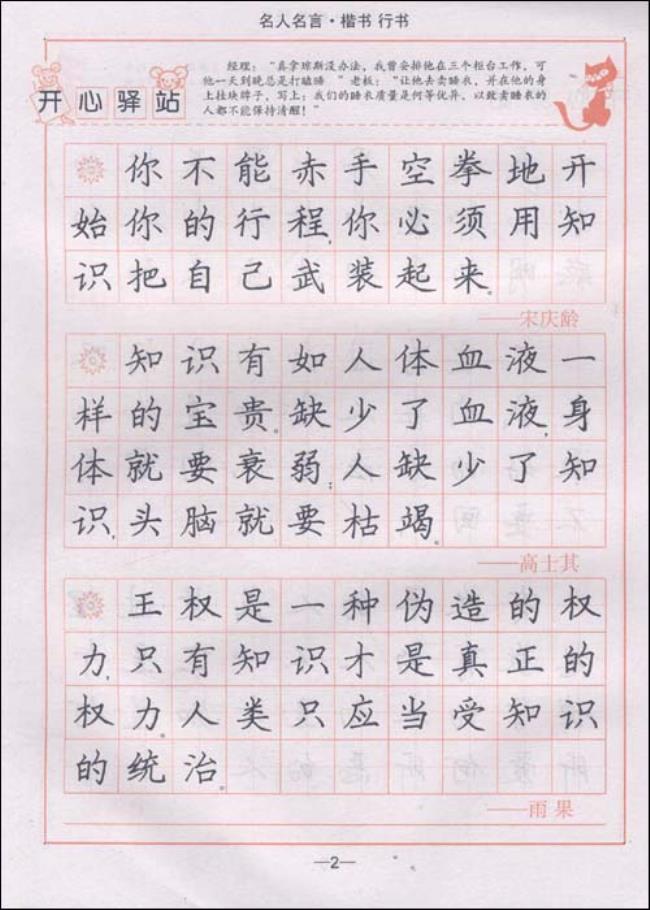 名人名言·楷书 行书
开心驿站
经理：“真拿琼斯没办法，我曾安排他在三个柜台工作，可
他一天到晚总是打瞌睡 ”老板：“让他去卖睡衣，并在他的身
上挂块牌子，写上：我们的睡衣质量是何等优异，以致卖睡衣的
人都不能保持清醒！”
你不能赤手空拳地开
始你的行程，你必须用知
识把自己武装起来。
——宋庆龄
知识有如人体血液一
样的宝贵。缺少了血液，身
体就要衰弱；人缺少了知
识，头脑就要枯竭。
——高士其
王权是一种伪造的权
力，只有知识才是真正的
权力。人类只应当受知识
的统治。
——雨果
—2—